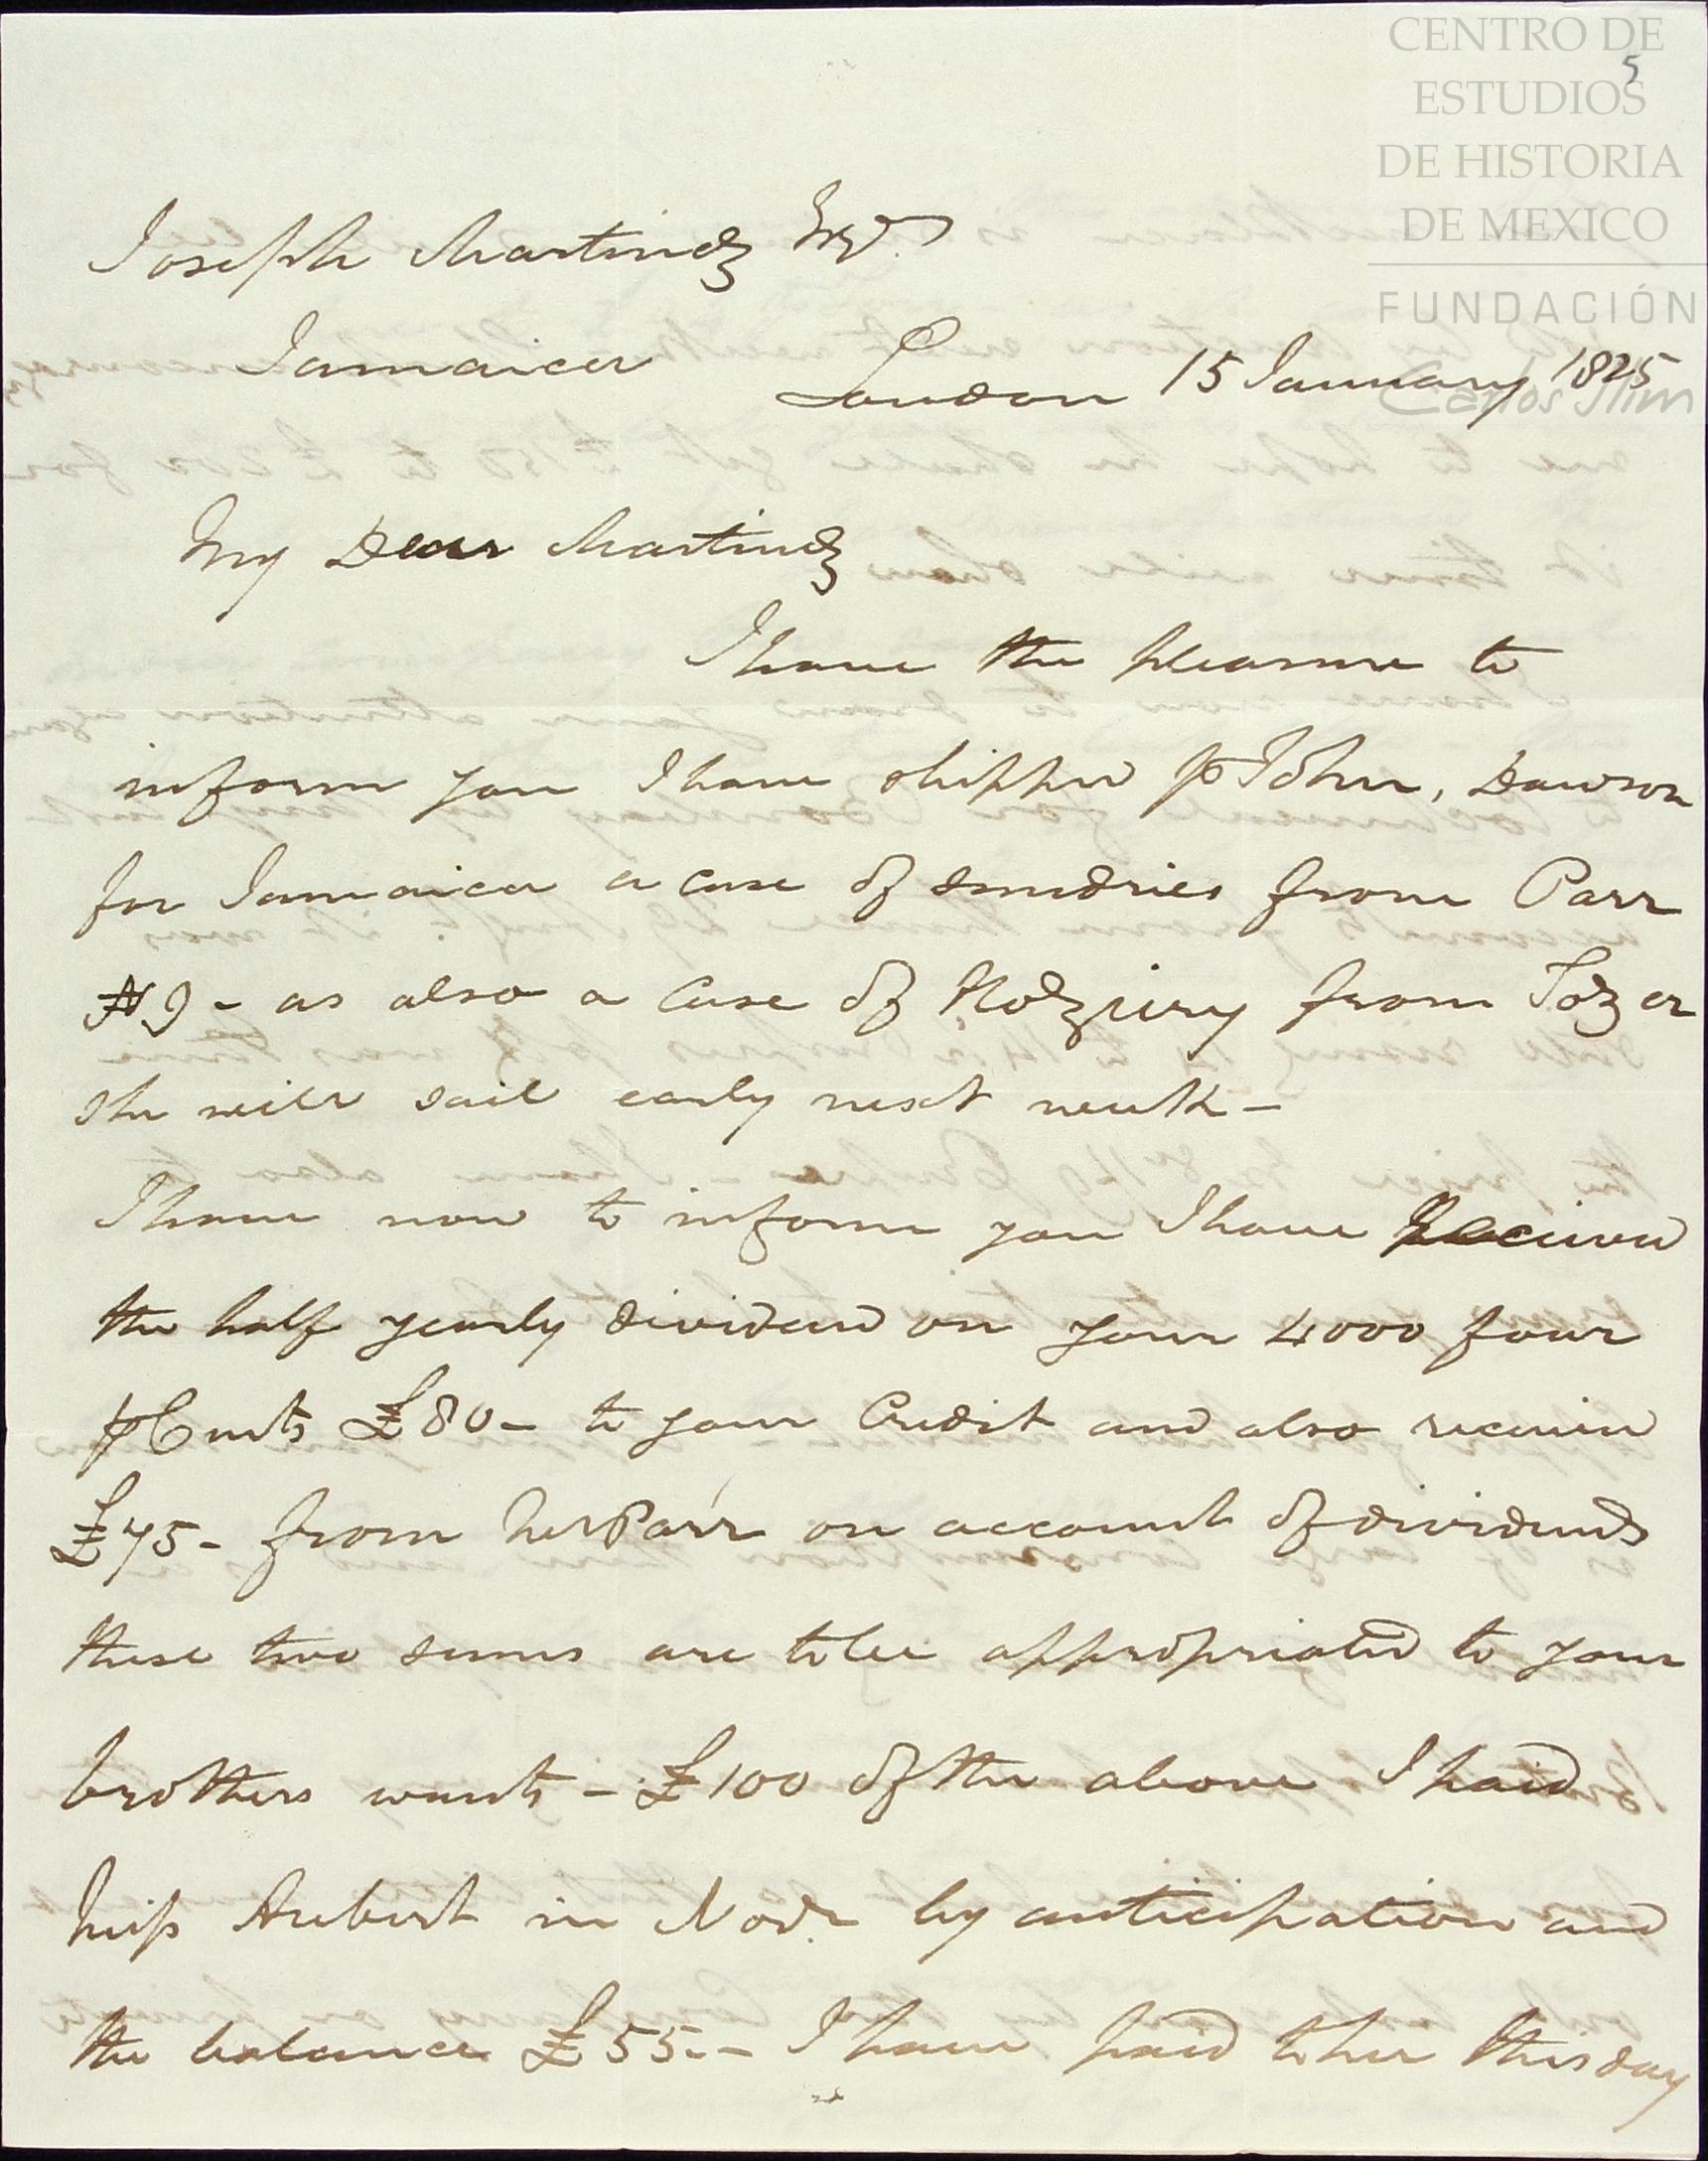 CENTRO DE
ESTUDIOS
DE HISTORIA
DE MEXICO
FUNDACIÓN
Carlos Slim
5
Joseph Martindz Esqr.
Jamaica
London 15 January 1825
My Dear Martindz
I have the pleasure to
inform you I have shipped p John, Dawson
for Jamaica a case of sundries from Parr
N 9 - as also a Case of Hodziery from Tozer
she will sail early next week -
I have now to inform you I have Received
the half yearly dividend on your 4000 four
p Cents £80 - to your Credit and also receivd
£75 - from Mr Parr on account of dividends
these two sums are to be appropriated to your
brothers wants - £100 of the above I paid
Miss Aubert in Novr. by anticipation and
the balance £55.- I have paid to her this day